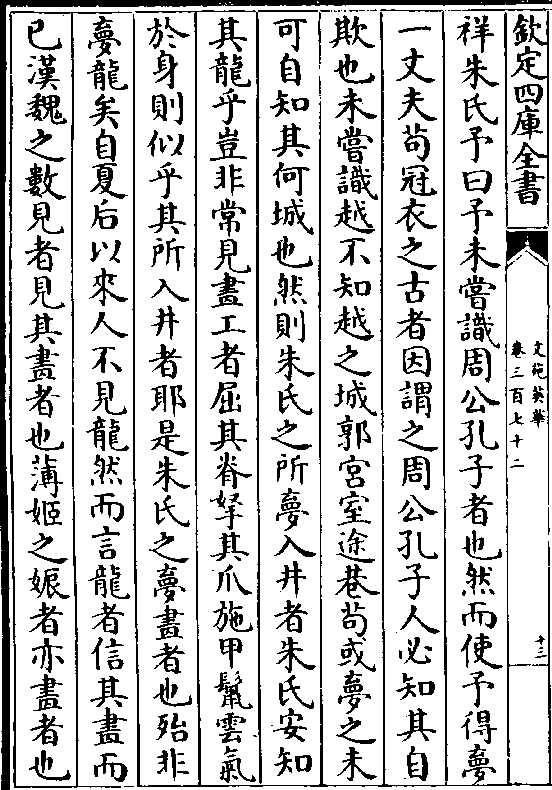 欽定四庫全書
文苑英華
卷三百七十二
十三
祥朱氏予曰予未嘗識周公孔子者也然而使予得夢
一丈夫苟冠衣之古者因謂之周公孔子人必知其自
欺也未嘗識越不知越之城郭宮室途巷苟或夢之未
可自知其何城也然則朱氏之所夢入井者朱氏安知
其龍乎豈非常見畫工者屈其脊拏其爪施甲鬛雲氣
於身則似乎其所入井者耶是朱氏之夢畫者也殆非
夢龍矣自夏后以來人不見龍然而言龍者信其畫而
已漢魏之數見者見其畫者也薄姬之娠者亦畫者也